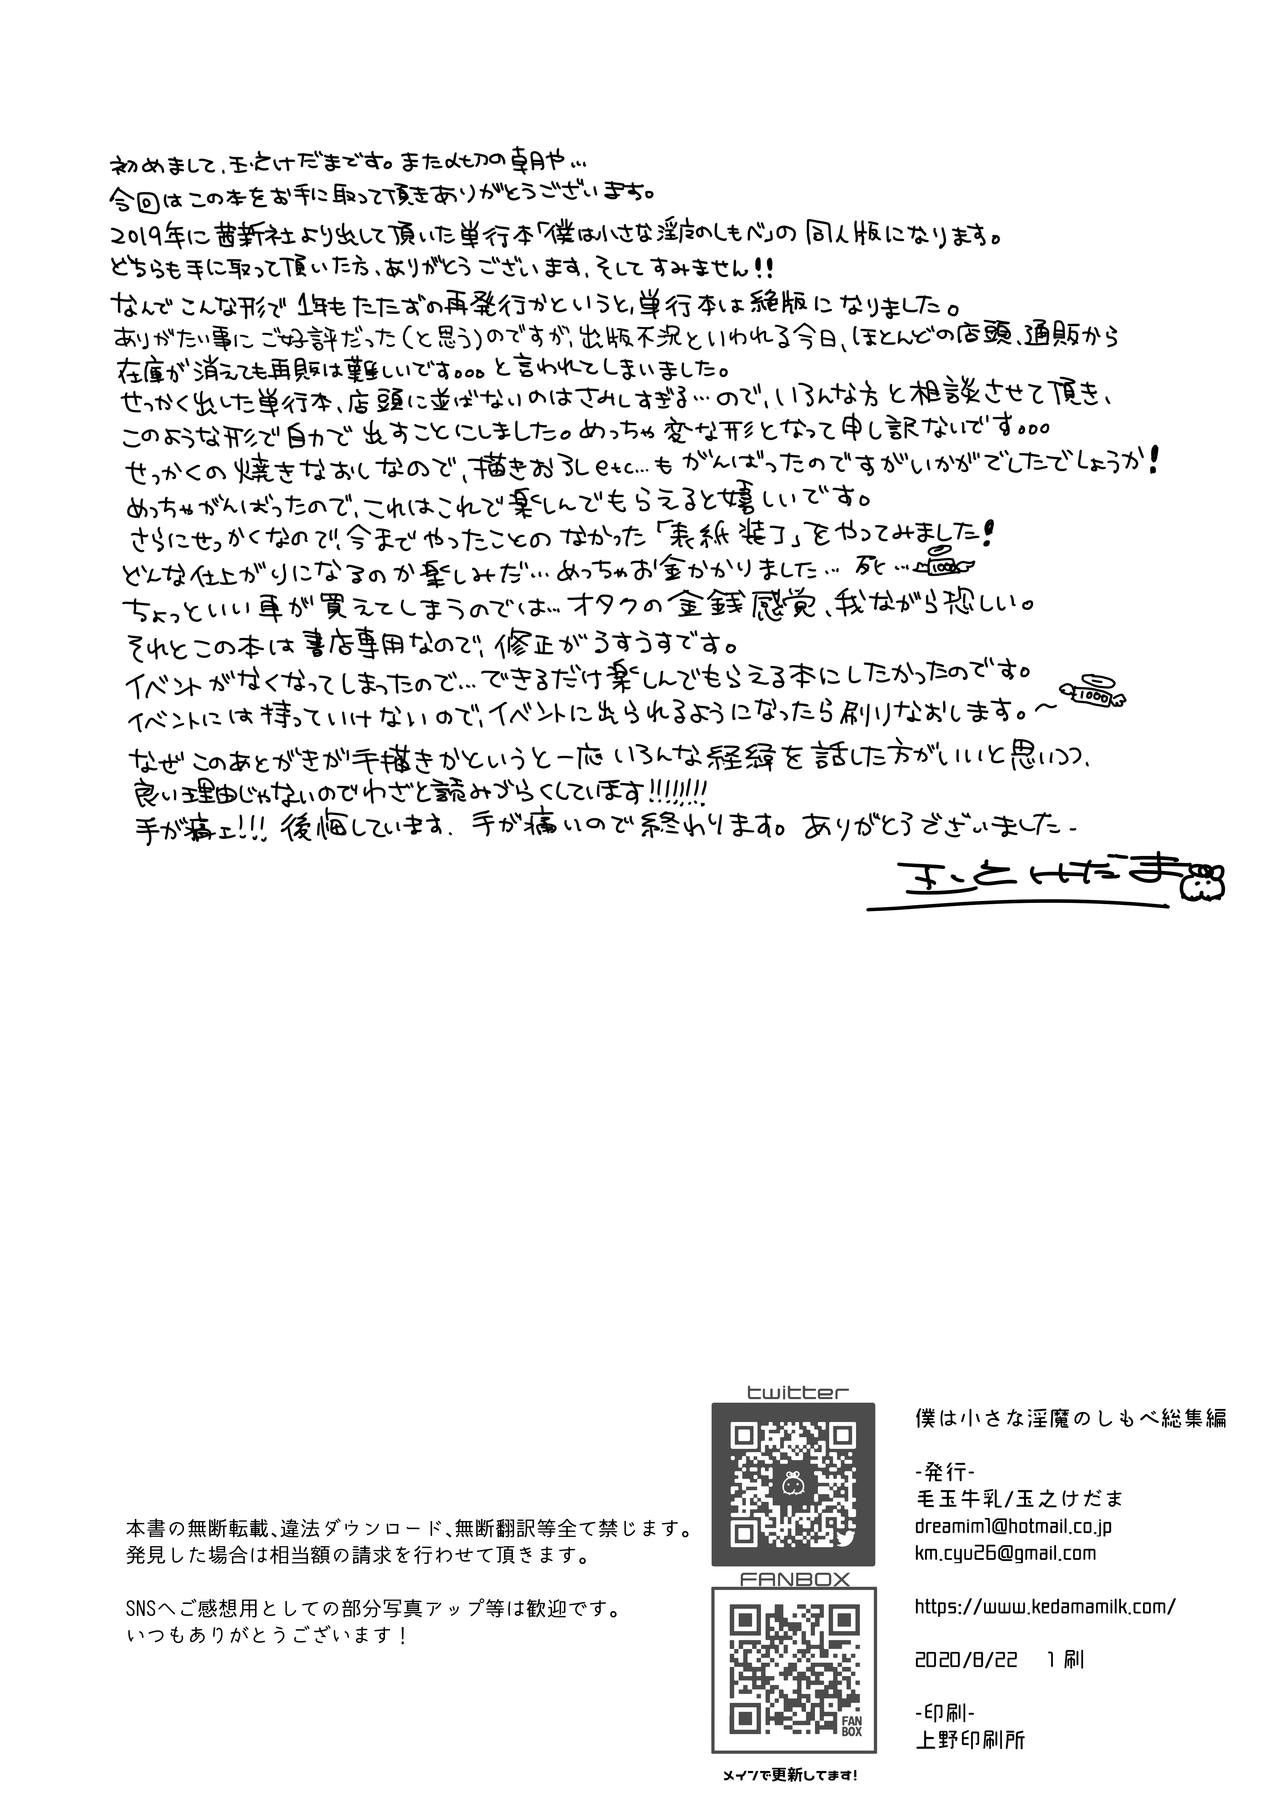 初めまして、玉之けだまです。また〆切の朝や…
今回はこの本をお手に取って頂きありがとうございます。
2019年に茜新社より出して頂いた単行本「僕は小さな淫魔のしもべ」の同人版になります。
どちらも手に取って頂いた方、ありがとうございます、そしてすみません!!
なんでこんな形で1年もたたずの再発行かというと、単行本は絶版になりました。
ありがたい事にご好評だった(と思う)のですが、出版不況といわれる今日、ほとんどの店頭、通販から
在庫が消えても再販は難しいです。。。と言われてしまいました。
せっかく出した単行本、店頭に並ばないのはさみしすぎる…ので、いろんな方と相談させて頂き、
このような形で自力で出すことにしました。めっちゃ変な形となって申し訳ないです。。。
せっかくの焼きなおしなので、描きおろしetc…もがんばったのですがいかがでしたでしょうか!
めっちゃがんばったので、これはこれで楽しんでもらえると嬉しいです。
さらにせっかくなので、今までやったことのなかった「表紙装丁」をやってみました!
どんな仕上がりになるのか楽しみだ…めっちゃお金かかりました…死…
100
ちょっといい車が買えてしまうのでは…オタクの金銭感覚、我ながら恐しい。
それとこの本は書店専用なので、修正がうすうすです。
イベントがなくなってしまったので…できるだけ楽しんでもらえる本にしたかったのです。
イベントには持っていけないので、イベントに出られるようになったら刷りなおします。〜
1000
なぜこのあとがきが手描きかというと一応いろんな経緯を話した方がいいと思いつつ、
良い理由じゃないのでわざと読みづらくしています!!!!!!!!
手が痛ェ!!! 後悔しています、手が痛いので終わります。ありがとうございました-
玉之けだま
twitter
FANBOX
FAN
BOX
メインで更新してます!
本書の無断転載、違法ダウンロード、無断翻訳等全て禁じます。
発見した場合は相当額の請求を行わせて頂きます。
SNSへご感想用としての部分写真アップ等は歓迎です。
いつもありがとうございます!
僕は小さな淫魔のしもべ総集編
-発行-
毛玉牛乳/玉之けだま
dreamim1@hotmail.co.jp
km.cyu26@gmail.com
https://www.kedamamilk.com/
2020/8/22 1刷
-印刷-
上野印刷所